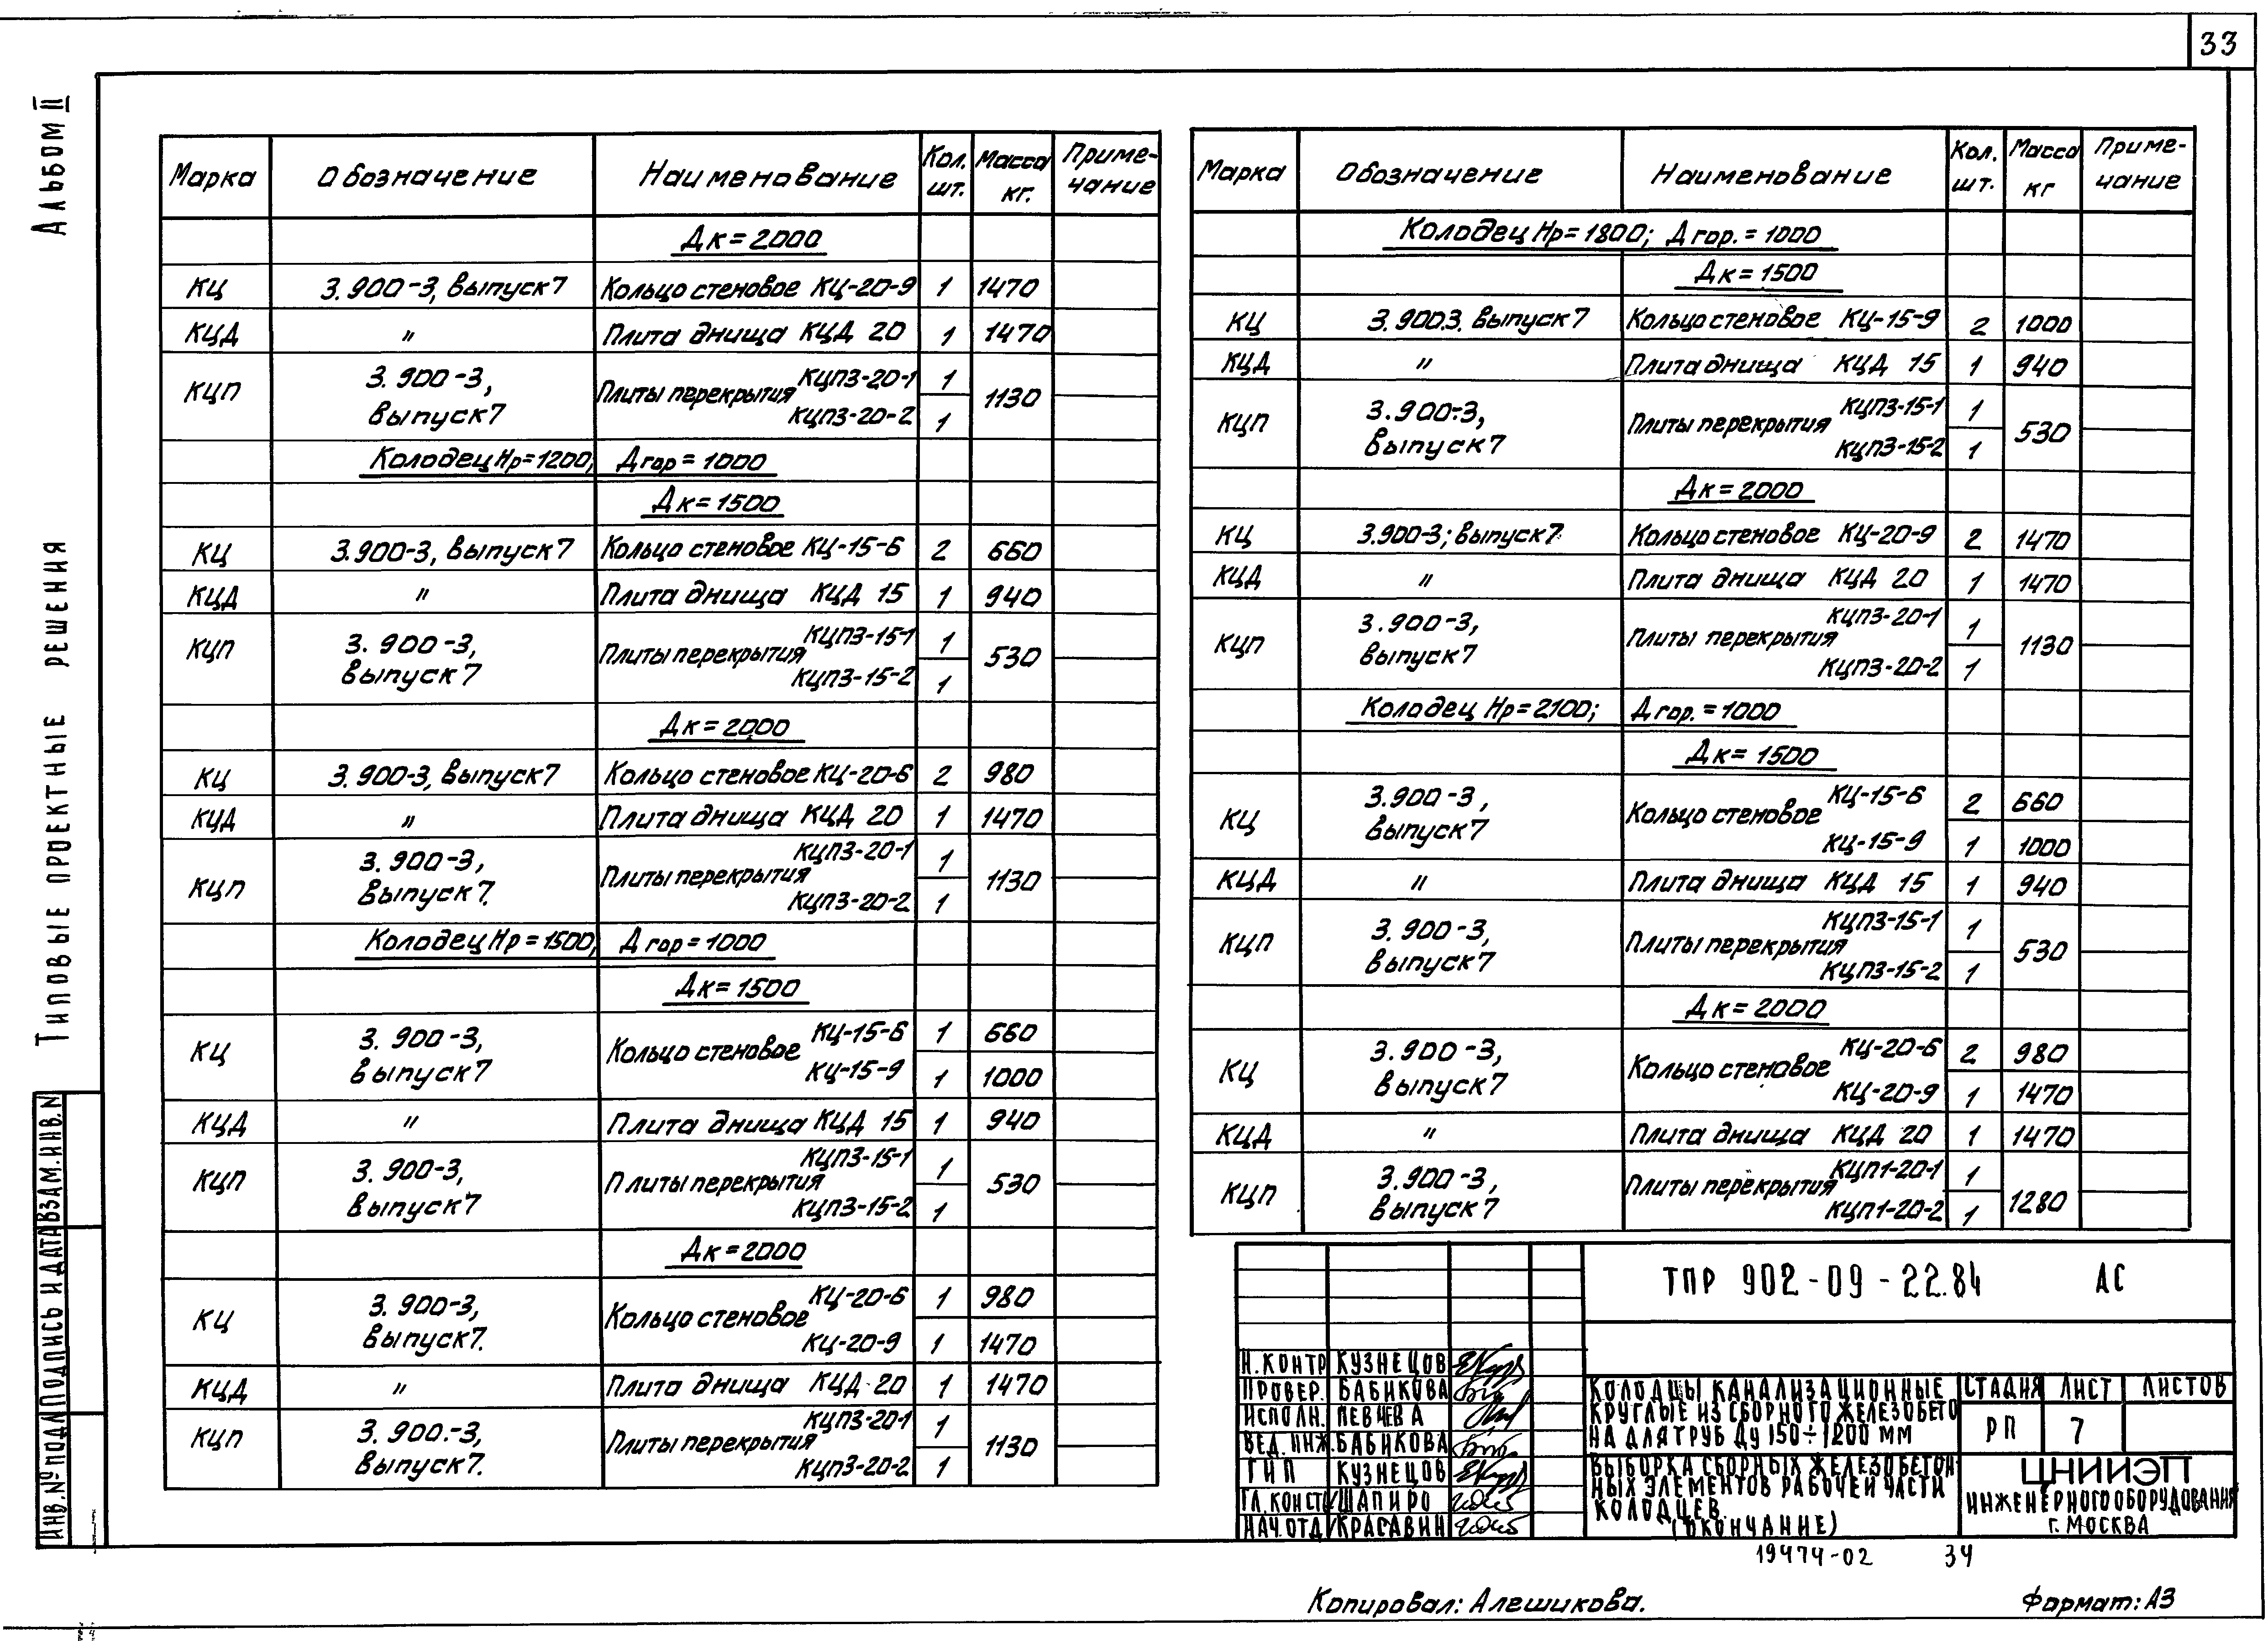 33
Альбом II
Типовые проектные решения
Марка Обозначение Наименование Кол. шт. Масса кг. Приме-чание
Дк=2000
КЦ 3.900-3, выпуск 7 Кольцо стеновое КЦ-20-9 1 1470
КЦД " Плита днища КЦД 20 1 1470
КЦП 3.900-3, выпуск 7 Плиты перекрытия КЦП3-20-1 1 1130
КЦП3-20-2 1
Колодец Нр=1200, Дгор=1000
Дк=1500
КЦ 3.900-3, выпуск 7 Кольцо стеновое КЦ-15-6 2 660
КЦД " Плита днища КЦД 15 1 940
КЦП 3.900-3, выпуск 7 Плиты перекрытия КЦП3-15-1 1 530
КЦП3-15-2 1
Дк=2000
КЦ 3.900-3, выпуск 7 Кольцо стеновое КЦ-20-6 2 980
КЦД " Плита днища КЦД 20 1 1470
КЦП 3.900-3, выпуск 7. Плиты перекрытия КЦП3-20-1 1 1130
КЦП3-20-2 1
Колодец Нр=1500, Дгор=1000
Дк=1500
КЦ 3.900-3, выпуск 7 Кольцо стеновое КЦ-15-6 1 660
КЦ-15-9 1 1000
КЦД " Плита днища КЦД 15 1 940
КЦП 3.900-3, выпуск 7 Плиты перекрытия КЦП3-15-1 1 530
КЦП3-15-2 1
Дк=2000
КЦ 3.900-3, выпуск 7. Кольцо стеновое КЦ-20-6 1 980
КЦ-20-9 1 1470
КЦД " Плита днища КЦД-20 1 1470
КЦП 3.900.-3, выпуск 7. Плиты перекрытия КЦП3-20-1 1 1130
КЦП3-20-2 1
Марка Обозначение Наименование Кол. шт. Масса кг Приме-чание
Колодец Нр=1800; Дгор.=1000
Дк=1500
КЦ 3.900.3. выпуск 7 Кольцо стеновое КЦ-15-9 2 1000
КЦД " Плита днища КЦД 15 1 940
КЦП 3.900-3, выпуск 7 Плиты перекрытия КЦП3-15-1 1 530
КЦП3-15-2 1
Дк=2000
КЦ 3.900-3; выпуск 7 Кольцо стеновое КЦ-20-9 2 1470
КЦД " Плита днища КЦД 20 1 1470
КЦП 3.900-3, выпуск 7 Плиты перекрытия КЦП3-20-1 1 1130
КЦП3-20-2 1
Колодец Нр=2100; Дгор.=1000
Дк=1500
КЦ 3.900-3, выпуск 7 Кольцо стеновое КЦ-15-6 2 660
КЦ-15-9 1 1000
КЦД " Плита днища КЦД 15 1 940
КЦП 3.900-3, выпуск 7 Плиты перекрытия КЦП3-15-1 1 530
КЦП3-15-2 1
Дк=2000
КЦ 3.900-3, выпуск 7 Кольцо стеновое КЦ-20-6 2 980
КЦ-20-9 1 1470
КЦД " Плита днища КЦД 20 1 1470
КЦП 3.900-3, выпуск 7 Плиты перекрытия КЦП1-20-1 1 1280
КЦП1-20-2 1
ТПР 902-09-22.84 АС
Н.КОНТР КУЗНЕЦОВ
ПРОВЕР. БАБИКОВА
ИСПОЛН. ПЕВЧЕВА
ВЕД.ИНЖ. БАБИКОВА
ГИП КУЗНЕЦОВ
ГЛ.КОНСТР ШАПИРО
НАЧ.ОТД КРАСАВИН
КОЛОДЦЫ КАНАЛИЗАЦИОННЫЕ
КРУГЛЫЕ ИЗ СБОРНОГО ЖЕЛЕЗОБЕТО
НА ДЛЯ ТРУБ Ду 150÷1200 ММ
СТАДИЯ ЛИСТ ЛИСТОВ
РП 7
ВЫБОРКА СБОРНЫХ ЖЕЛЕЗОБЕТОН
НЫХ ЭЛЕМЕНТОВ РАБОЧЕЙ ЧАСТИ
КОЛОДЦЕВ.
(ОКОНЧАНИЕ)
ЦНИИЭП
ИНЖЕНЕРНОГО ОБОРУДОВАНИЯ
Г. МОСКВА
ИНВ.№ ПОДЛ ПОДПИСЬ И ДАТА ВЗАМ.ИНВ.N
19474-02 34
Копировал: Алешикова. Формат: А3